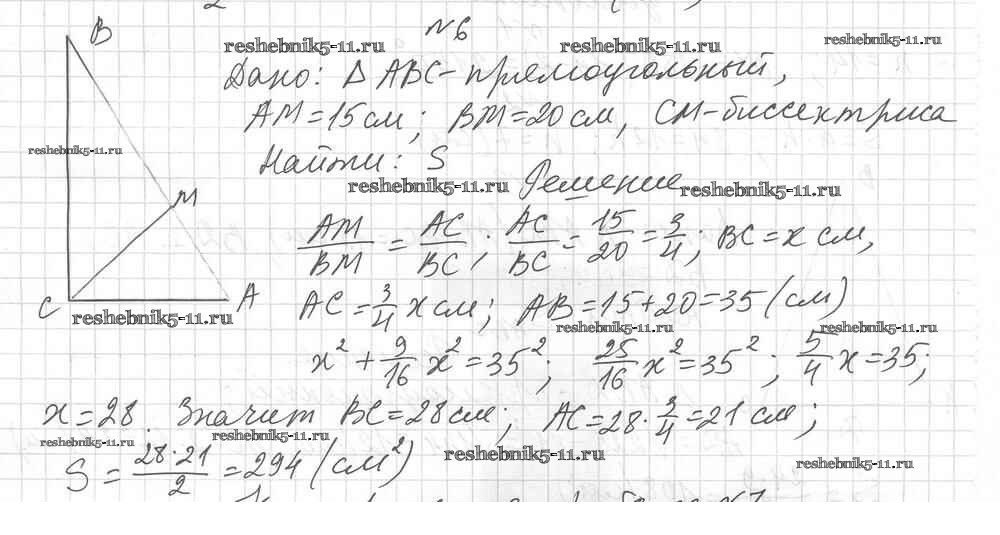 №6
B
reshebnik5-11.ru reshebnik5-11.ru reshebnik5-11.ru
Дано: Δ ABC - прямоугольный,
AM = 15 см; BM = 20 см, CM - биссектриса
reshebnik5-11.ru
Найти: S
reshebnik5-11.ru reshebnik5-11.ru
Решение
M
AM/BM = AC/BC; AC/BC = 15/20 = 3/4; BC = x см,
C A
AC = 3/4 x см; AB = 15 + 20 = 35 (см)
reshebnik5-11.ru reshebnik5-11.ru reshebnik5-11.ru
x² + 9/16 x² = 35²; 25/16 x² = 35²; 5/4 x = 35;
x = 28. Значит BC = 28 см; AC = 28 · 3/4 = 21 см;
reshebnik5-11.ru reshebnik5-11.ru reshebnik5-11.ru reshebnik5-11.ru
S = 28·21/2 = 294 (см²)